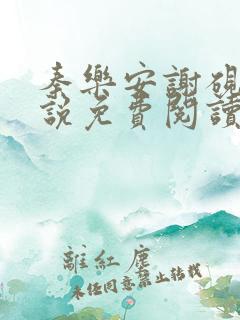 秦樂安謝硯
說免費閱讀
離紅塵
未经同意禁止转载